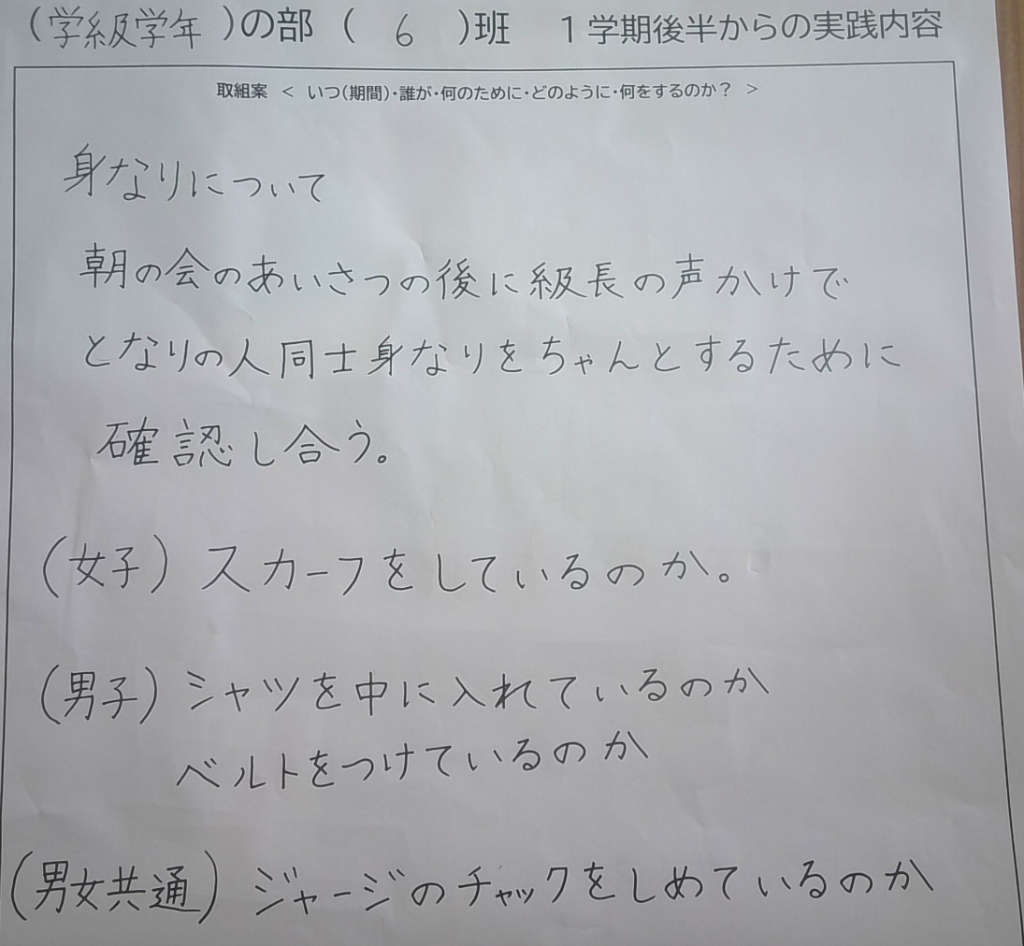 (学級学年)の部 ( 6 )班 1学期後半からの実践内容
取組案 < いつ(期間)・誰が・何のために・どのように・何をするのか? >
身なりについて
朝の会のあいさつの後に級長の声かけで
となりの人同士身なりをちゃんとするために
確認し合う。
(女子) スカーフをしているのか。
(男子) シャツを中に入れているのか
ベルトをつけているのか
(男女共通) ジャージのチャックをしめているのか